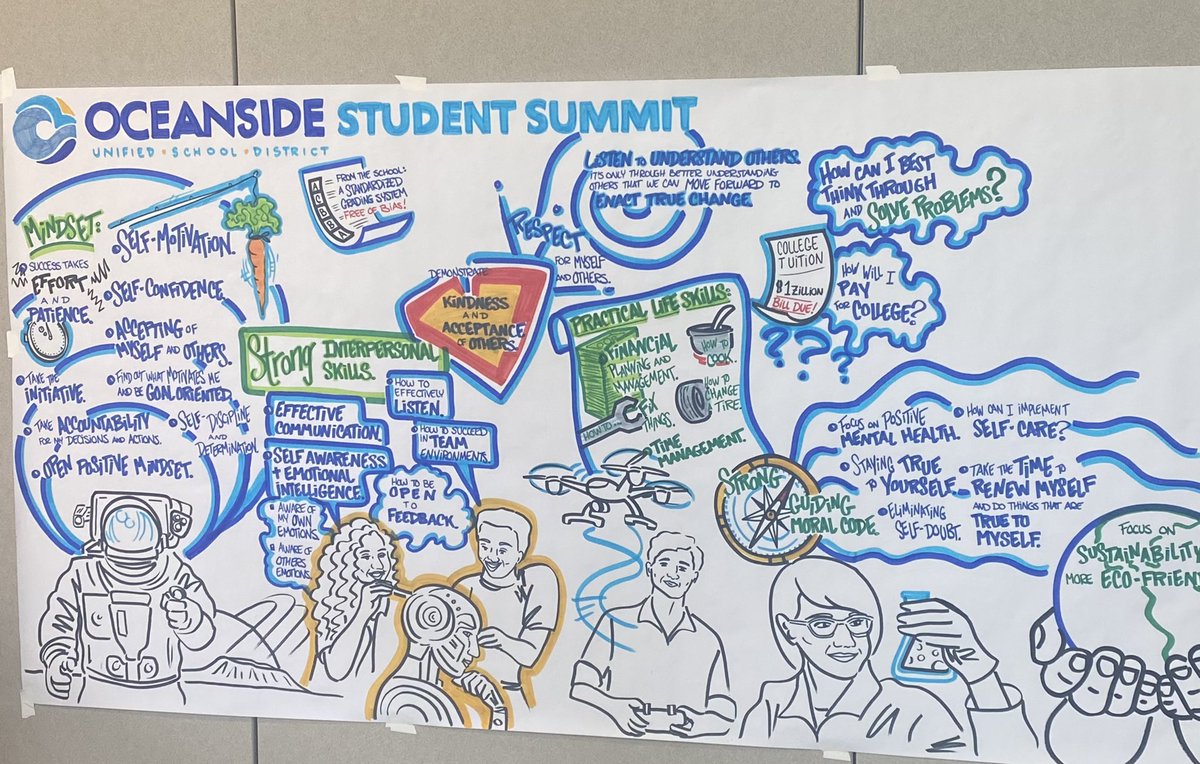 OCEANSIDE STUDENT SUMMIT
UNIFIED • SCHOOL • DISTRICT
MINDSET:
SUCCESS TAKES
EFFORT
AND
PATIENCE.
• SELF-MOTIVATION.
• SELF-CONFIDENCE.
• ACCEPTING OF
MYSELF AND OTHERS.
• TAKE THE
INITIATIVE.
• FIND OUT WHAT MOTIVATES ME
AND BE GOAL ORIENTED.
• TAKE ACCOUNTABILITY
FOR MY DECISIONS AND ACTIONS.
• SELF-DISCIPLINE
AND
DETERMINATION.
• OPEN POSITIVE MINDSET.
FROM THE SCHOOL:
A STANDARDIZED
GRADING SYSTEM
FREE OF BIAS!
Strong INTERPERSONAL
SKILLS.
EFFECTIVE
COMMUNICATION.
SELF AWARENESS
+ EMOTIONAL
INTELLIGENCE.
• AWARE OF
MY OWN
EMOTIONS.
• AWARE OF
OTHERS
EMOTIONS.
• HOW TO
EFFECTIVELY
LISTEN.
• HOW TO SUCCEED
IN TEAM
ENVIRONMENTS.
HOW TO BE
OPEN
TO
FEEDBACK.
DEMONSTRATE
KINDNESS
AND
ACCEPTANCE
OF OTHERS.
RESPECT
FOR MYSELF
AND OTHERS.
LISTEN TO UNDERSTAND OTHERS.
IT'S ONLY THROUGH BETTER UNDERSTANDING
OTHERS THAT WE CAN MOVE FORWARD TO
ENACT TRUE CHANGE.
PRACTICAL LIFE SKILLS:
• FINANCIAL
PLANNING AND
MANAGEMENT.
HOW TO
COOK.
HOW TO
CHANGE
TIRE
HOW TO
FIX
THINGS.
• TIME
MANAGEMENT.
HOW CAN I BEST
THINK THROUGH
AND SOLVE PROBLEMS?
COLLEGE
TUITION
$1 ZILLION
BILL DUE!
HOW WILL I
PAY
FOR COLLEGE?
???
STRONG
GUIDING
MORAL CODE.
• FOCUS ON POSITIVE
MENTAL HEALTH.
• HOW CAN I IMPLEMENT
SELF-CARE?
• STAYING TRUE
TO YOURSELF.
• ELIMINATING
SELF-DOUBT.
• TAKE THE TIME TO
RENEW MYSELF
AND DO THINGS THAT ARE
TRUE TO
MYSELF.
FOCUS ON
SUSTAINABILITY
MORE ECO-FRIEN